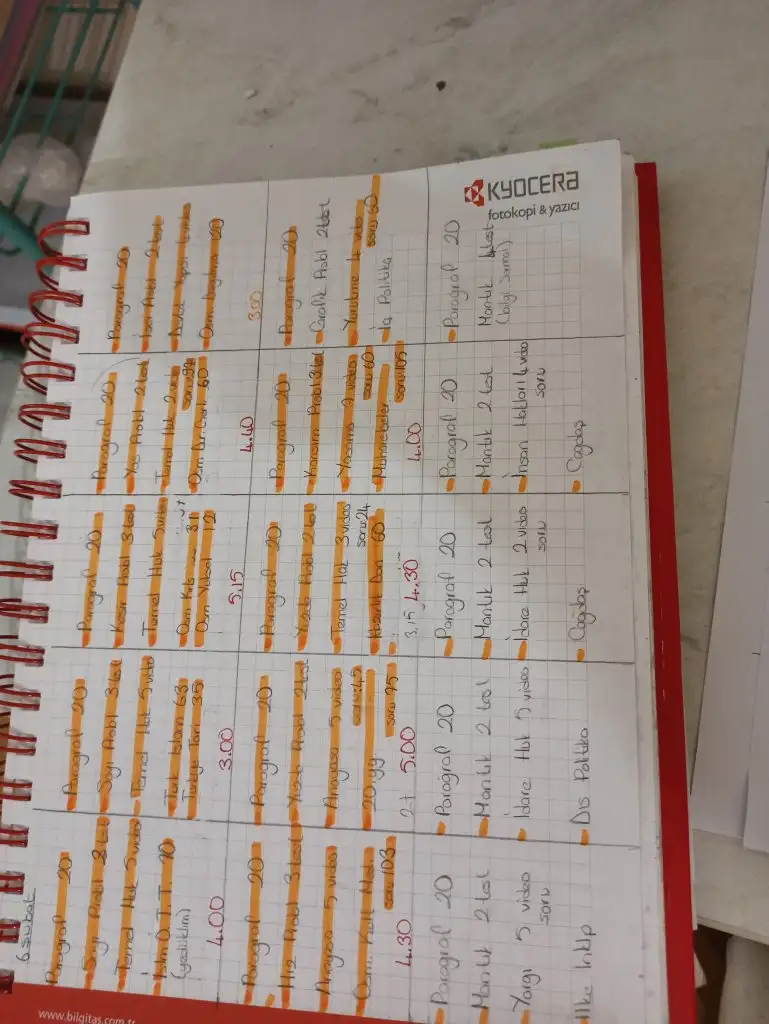 KYOCERA
fotokopi & yazıcı
6 Şubat
Paragraf 20
Sayı Probl 3 test
Temel Huk 5 video
İsl. Ö. T. T. 70
(yediiklim)
4.00
Paragraf 20
Sayı Probl 3 test
Temel Huk 5 video
Türk İslam 63
Türkiye Tar 35
3.00
Paragraf 20
Kesir Probl 3 test
Temel Huk 5 video
Osm Yüksel 12
5.15
Paragraf 20
Yaş Probl 2 test
Temel Huk 2 vid
soru 97
60
4.40
Paragraf 20
Probl 2 test
Yapısı video
Osm Dağılma 129
3.00
Paragraf 20
Hız Probl 3 test
Anayasa 5 video
Osm. Kült Med.
soru 103
4.30
Paragraf 20
Yüzde Probl 2 test
Anayasa 5 video
soru: 45
20. yy
soru 95
2+ 5.00
Paragraf 20
Yüzde Probl 2 test
Temel Huk 3 video
soru 24
60
3.15 4.30
Paragraf 20
Karışım Probl 3 test
Yasama 9 video
soru 60
soru 105
4.00
Paragraf 20
Grafik Probl 2 test
Yürütme 4 video
soru 60
İç Politika
Paragraf 20
Mantık 2 test
Yargı 5 video
soru
İlke İnklp
Paragraf 20
Mantık 2 test
İdare Huk 5 video
Dış Politika
Paragraf 20
Mantık 2 test
İdare Huk 2 video
soru
Çağdaş
Paragraf 20
Mantık 2 test
İnsan Hakları 4 video
soru
Çağdaş
Paragraf 20
Mantık 4 test
(bilgi sarmal)
www.bilgitas.com.tr